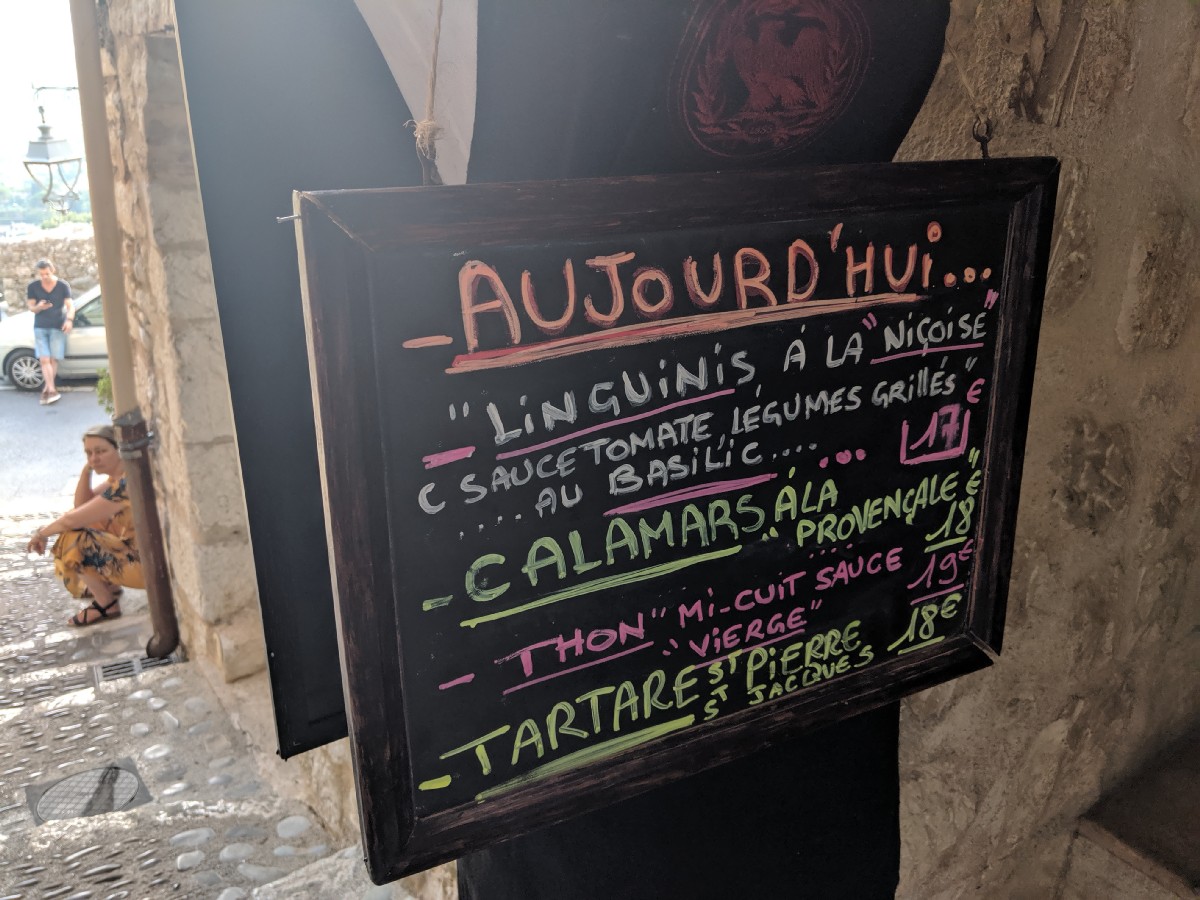 - AUJOURD'HUi...
- "LiNGUiNiS À LA "NiÇOiSE"
( SAUCE TOMATE, LÉGUMES GRiLLÉS"
.... AU BASiLiC.... ... 17 €
- CALAMARS À LA
"PROVENÇALE" 18 €
- THON "Mi-CUiT SAUCE 19€
"ViERGE"
- TARTARE ST PiERRE 18€
ST JACQUES